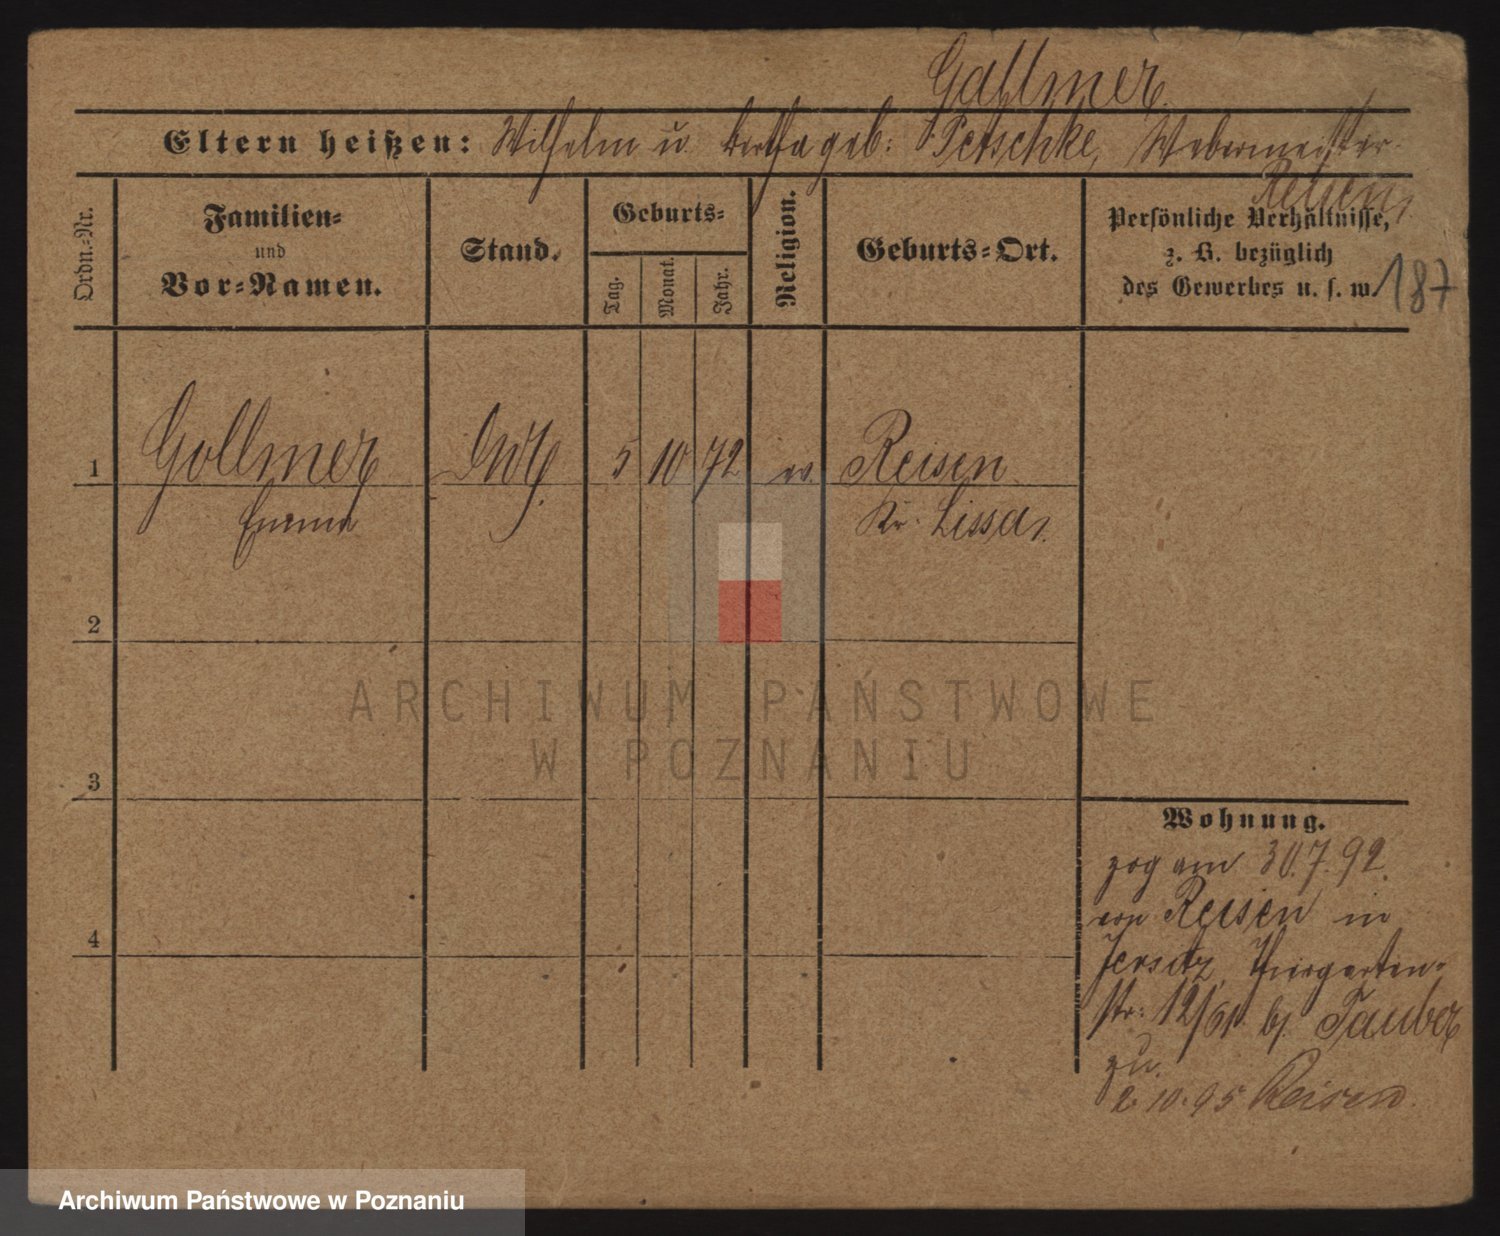 Gollmer.
Eltern heißen: Wilhelm u Bertha geb: Petschke, Webermeister
Reisen,
Ordn.-Nr.
Familien-
und
Vor-Namen.
Stand.
Geburts-
Tag.
Monat.
Jahr.
Religion.
Geburts-Ort.
Persönliche Verhältnisse,
z. B. bezüglich
des Gewerbes u. s. w.
187
1 Gollmer 5 10 72 ev. Reisen
Emma Kr. Lissa.
2
3
4
Wohnung.
zog am 30.7.92.
von Reisen in
Jersitz, Thiergarten-
str: 12/61 bj. Tauber
zu.
2.10.95 Reisen.
ARCHIWUM PAŃSTWOWE
W POZNANIU
Archiwum Państwowe w Poznaniu